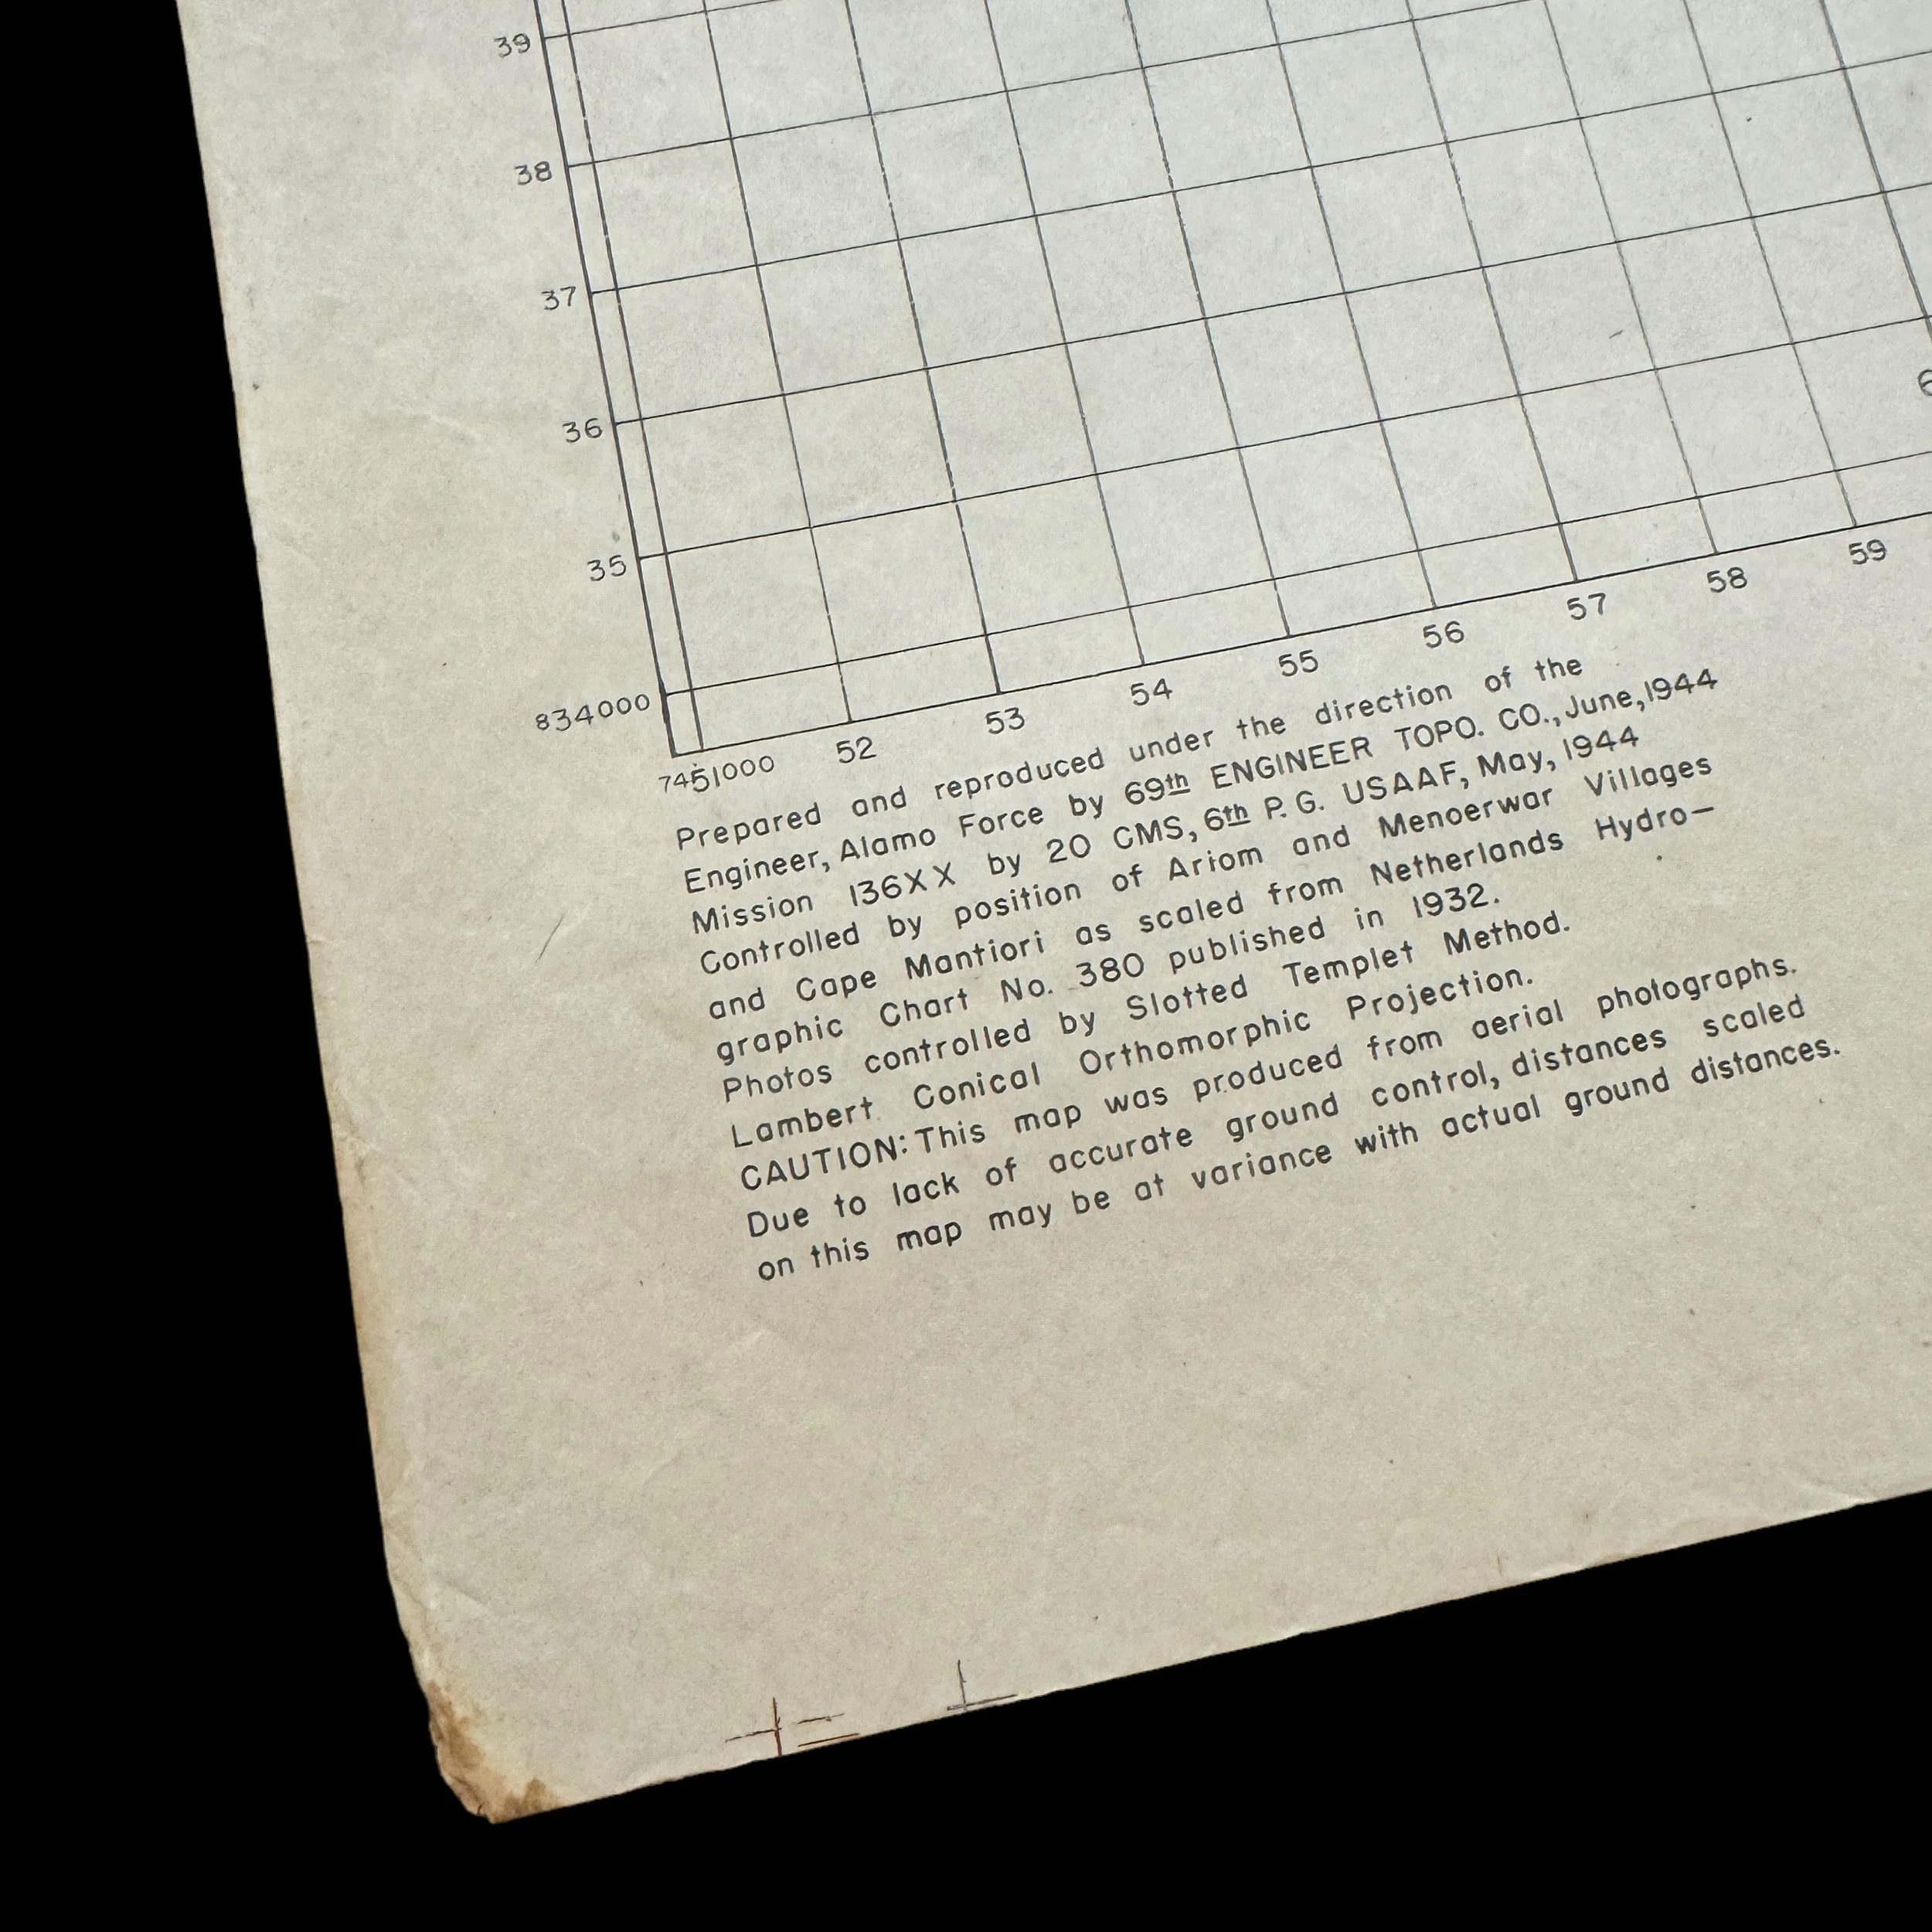 39
38
37
36
35
834000
7451000 52 53 54 55 56 57 58 59
Prepared and reproduced under the direction of the
Engineer, Alamo Force by 69th ENGINEER TOPO. CO., June, 1944
Mission 136XX by 20 CMS, 6th P.G. USAAF, May, 1944
Controlled by position of Ariom and Menoerwar Villages
and Cape Mantiori as scaled from Netherlands Hydro-
graphic Chart No. 380 published in 1932.
Photos controlled by Slotted Templet Method.
Lambert Conical Orthomorphic Projection.
CAUTION: This map was produced from aerial photographs.
Due to lack of accurate ground control, distances scaled
on this map may be at variance with actual ground distances.